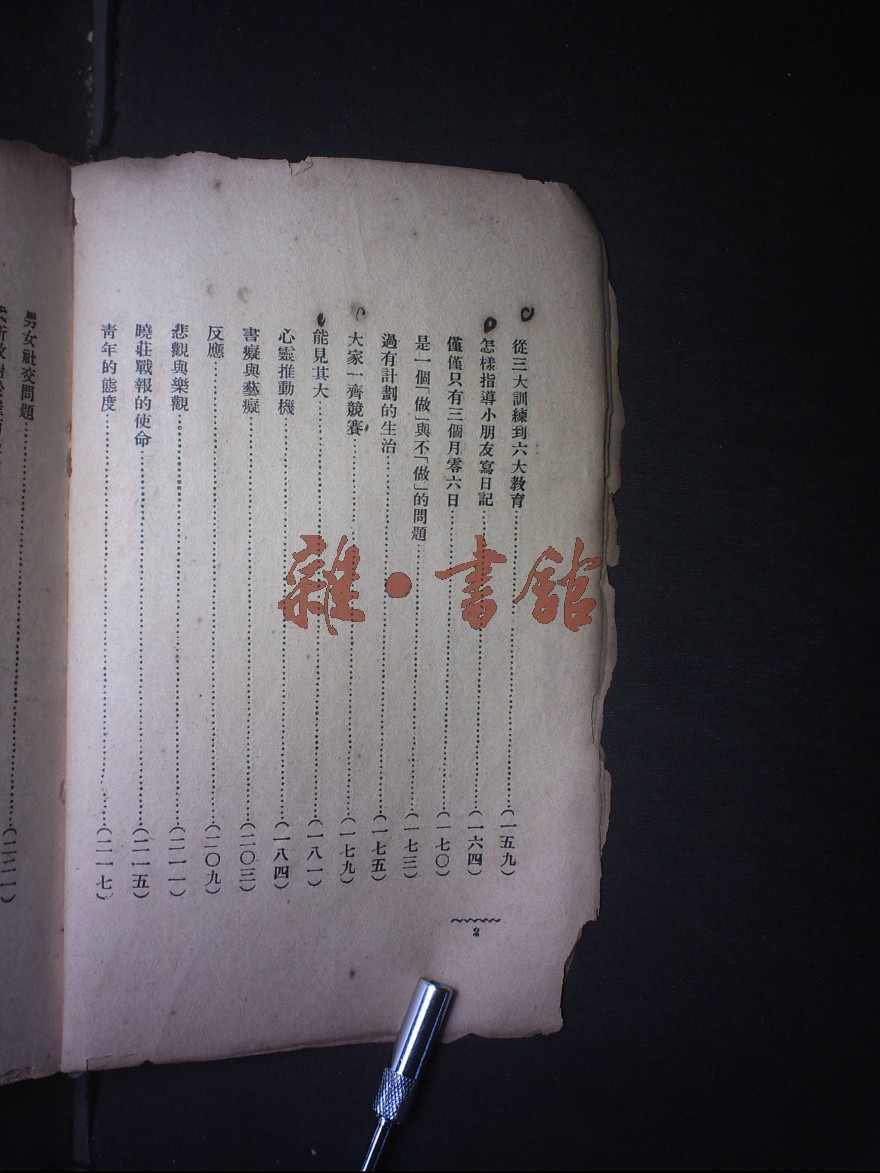 從三大訓練到六大教育(一五九)
怎樣指導小朋友寫日記(一六四)
僅僅只有三個月零六日(一七〇)
是一個「做」與不「做」的問題(一七三)
過有計劃的生治(一七五)
大家一齊競賽(一七九)
能見其大(一八一)
心靈推動機(一八四)
書癡與藝癡(二〇三)
反應(二〇九)
悲觀與樂觀(二一一)
曉莊戰報的使命(二一五)
青年的態度(二一七)
2
男女社交問題(二二一)
雜·書館